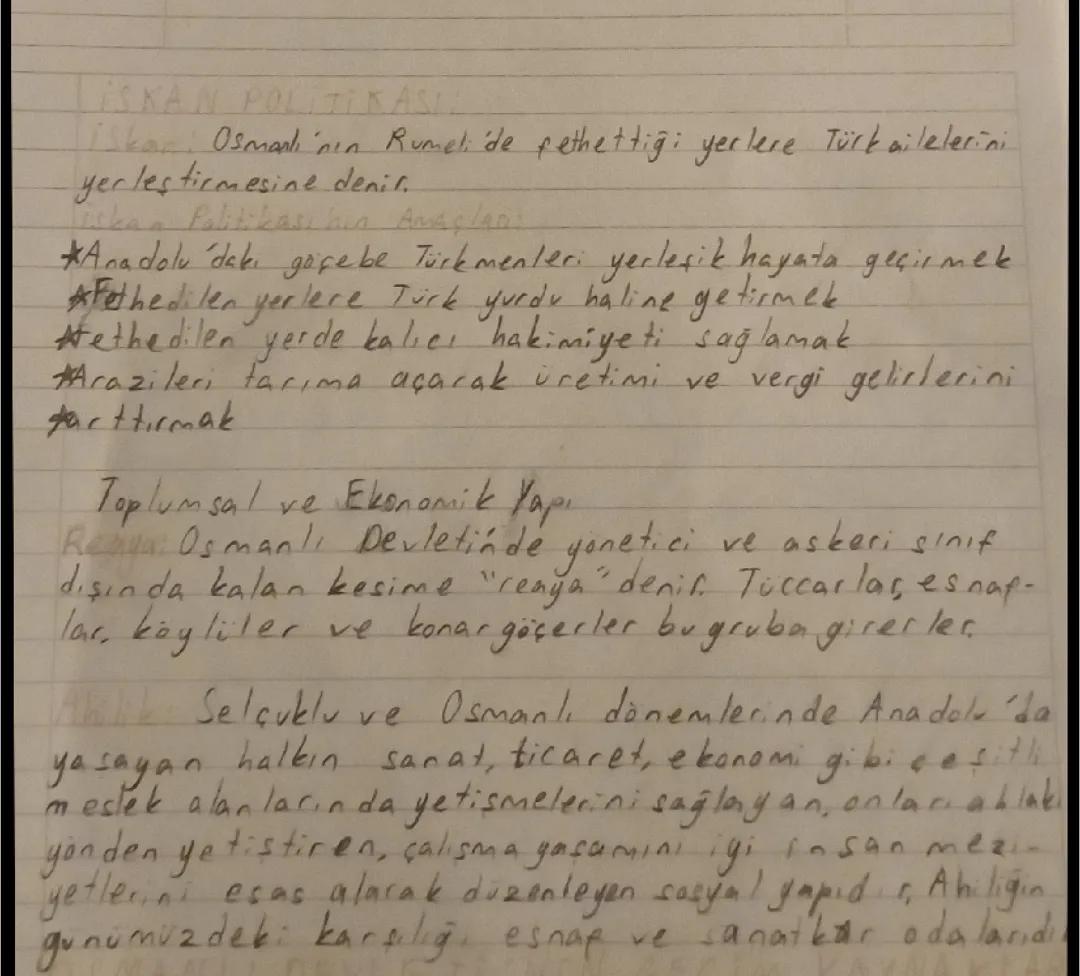 İSKAN POLİTİKASI:
İskan: Osmanlı'nın Rumeli'de fethettiği yerlere Türk ailelerini
yerleştirmesine denir.
İskan Politikası'nın Amaçları:
*Anadolu'daki göçebe Türkmenleri yerleşik hayata geçirmek
*Fethedilen yerlere Türk yurdu haline getirmek
*Fethedilen yerde kalıcı hakimiyeti sağlamak
*Arazileri tarıma açarak üretimi ve vergi gelirlerini
*arttırmak
Toplumsal ve Ekonomik Yapı
Reaya: Osmanlı Devletin'de yönetici ve askeri sınıf
dışında kalan kesime "reaya" denir. Tüccarlar, esnaf-
lar, köylüler ve konar göçerler bu gruba girerler.
Ahilik: Selçuklu ve Osmanlı dönemlerinde Anadolu'da
yaşayan halkın sanat, ticaret, ekonomi gibi çeşitli
meslek alanlarında yetişmelerini sağlayan, onları ahlaki
yönden yetiştiren, çalışma yaşamını iyi insan mezi-
yetlerini esas alarak düzenleyen sosyal yapıdır. Ahiliğin
günümüzdeki karşılığı esnaf ve sanatkar odalarıdır